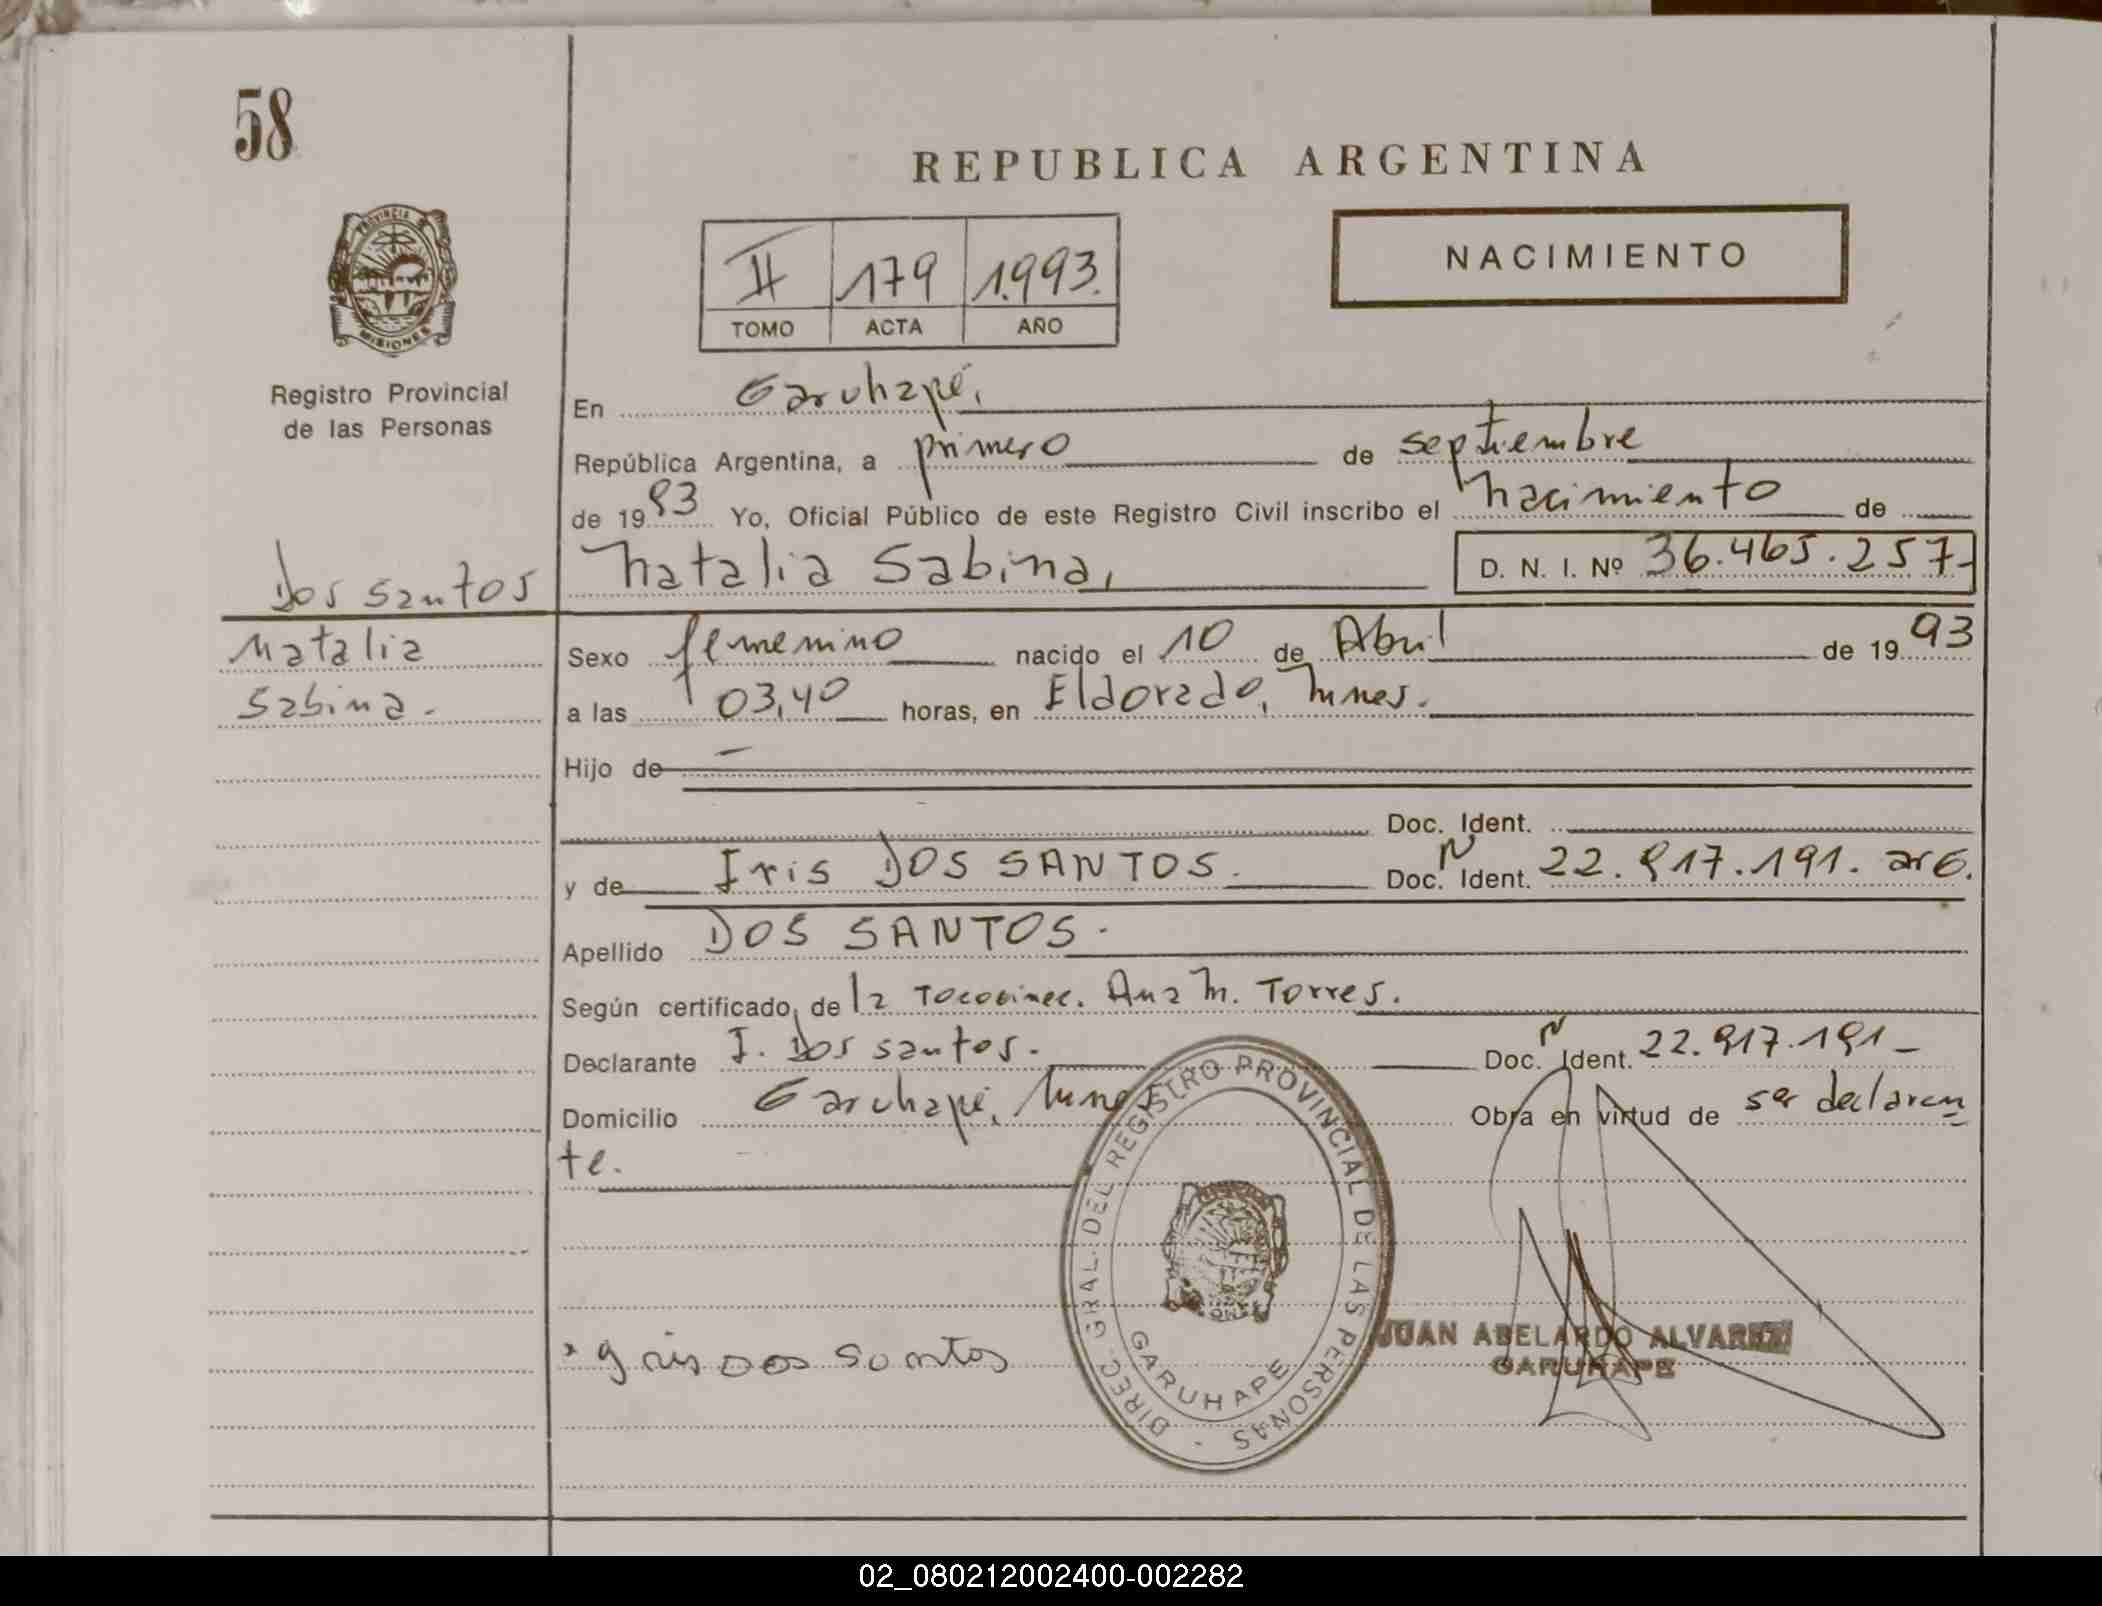 58
REPUBLICA ARGENTINA
PROVINCIA
MISIONES
II 179 1.993.
TOMO ACTA AÑO
NACIMIENTO
Registro Provincial
de las Personas
En Garuhapé,
República Argentina, a primero de septiembre
de 1993 Yo, Oficial Público de este Registro Civil inscribo el nacimiento de
Dos santos
Natalia
Sabina.
Natalia Sabina, D. N. I. Nº 36.465.257-
Sexo femenino nacido el 10 de Abril de 1993
a las 03,40 horas, en Eldorado, Mnes.
Hijo de
Doc. Ident.
y de Iris DOS SANTOS. Doc. N Ident. 22.917.191. arG.
Apellido DOS SANTOS.
Según certificado, de la Ana M. Torres.
Declarante I. Dos santos. Doc. N Ident. 22.917.191-
Domicilio Garuhapé, Mnes Obra en virtud de ser declaran
te.
DIREC. GRAL. DEL REGISTRO PROVINCIAL DE LAS PERSONAS
GARUHAPE
JUAN ABELARDO ALVAREZ
GARUHAPE
iris dos santos
02_080212002400-002282